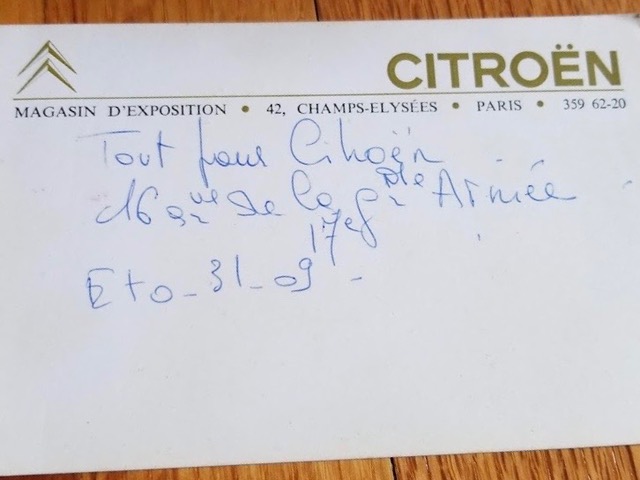 CITROËN
MAGASIN D'EXPOSITION • 42, CHAMPS-ELYSÉES • PARIS • 359 62-20
Tout pour Citroën
16 ave de la Gde Armée
17e
Eto-31-09-